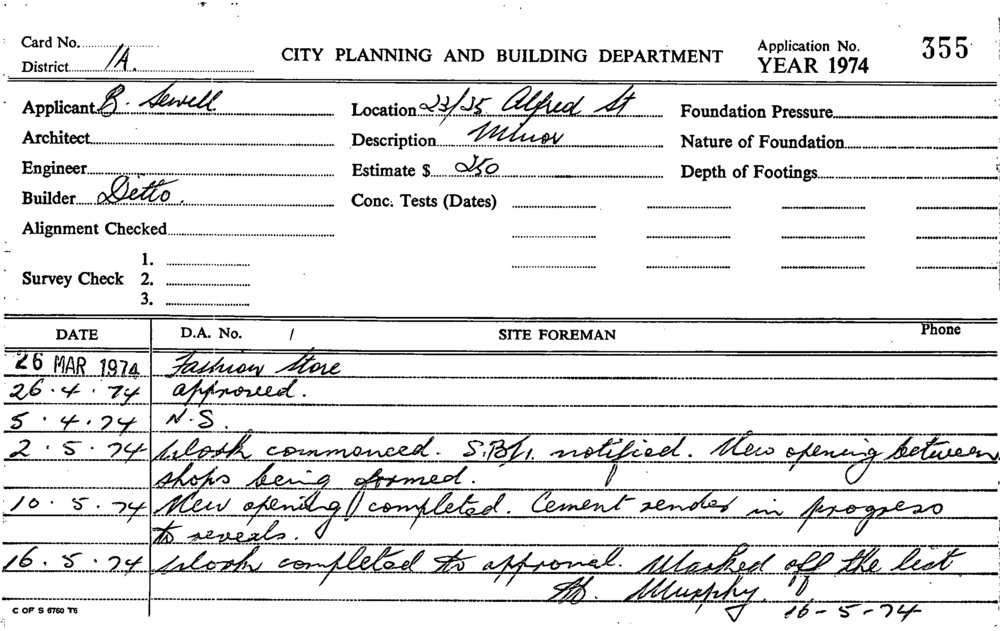 Card No.
District 1A.
CITY PLANNING AND BUILDING DEPARTMENT
Application No. 355
YEAR 1974
Applicant B. Sewell
Location 23/25 Alfred St
Foundation Pressure
Architect
Description Minor
Nature of Foundation
Engineer
Estimate $ 250
Depth of Footings
Builder Ditto.
Conc. Tests (Dates)
Alignment Checked
1.
Survey Check 2.
3.
DATE D.A. No. / SITE FOREMAN Phone
26 MAR 1974 Fashion Store
26.4.74 approved.
5.4.74 N.S.
2.5.74 Work commenced. S.B.I. notified. New opening between
shops being formed.
10.5.74 New opening completed. Cement render in progress
to reveals.
16.5.74 Work completed to approval. Marked off the list
Murphy.
16-5-74
C OF S 6760 T6